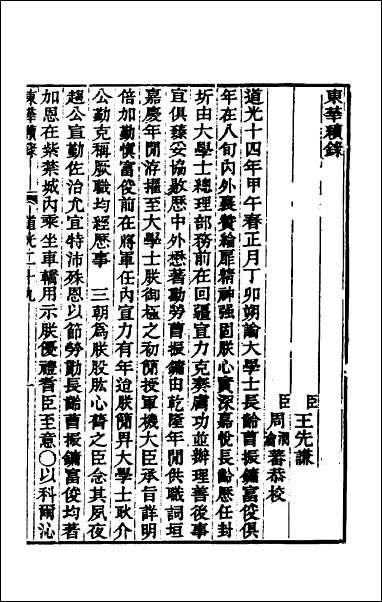 東華續錄
臣王先謙
臣周潤蕃 周瀹蕃恭校
道光十四年甲午春正月丁卯朔諭大學士長齡曹振鏞富俊俱
年在八旬內外襄贊綸扉精神强固朕心實深嘉悅長齡歷任封
圻由大學士總理部務前在回疆宣力克奏膚功並辦理善後事
宜俱臻妥協敭歷中外懋著勳勞曹振鏞由乾隆年閒供職詞垣
嘉慶年閒洊擢至大學士朕御極之初簡授軍機大臣承旨詳明
倍加勤慎富俊前在將軍任內宣力有年迨朕簡畀大學士耿介
公勤克稱厥職均經歷事 三朝爲朕股肱心膂之臣念其夙夜
趨公宣勤佐治尤宜特沛殊恩以節勞勩長齡曹振鏞富俊均著
加恩在紫禁城內乘坐車轎用示朕優禮耆臣至意〇以科爾沁
東華續錄 道光二十九 一